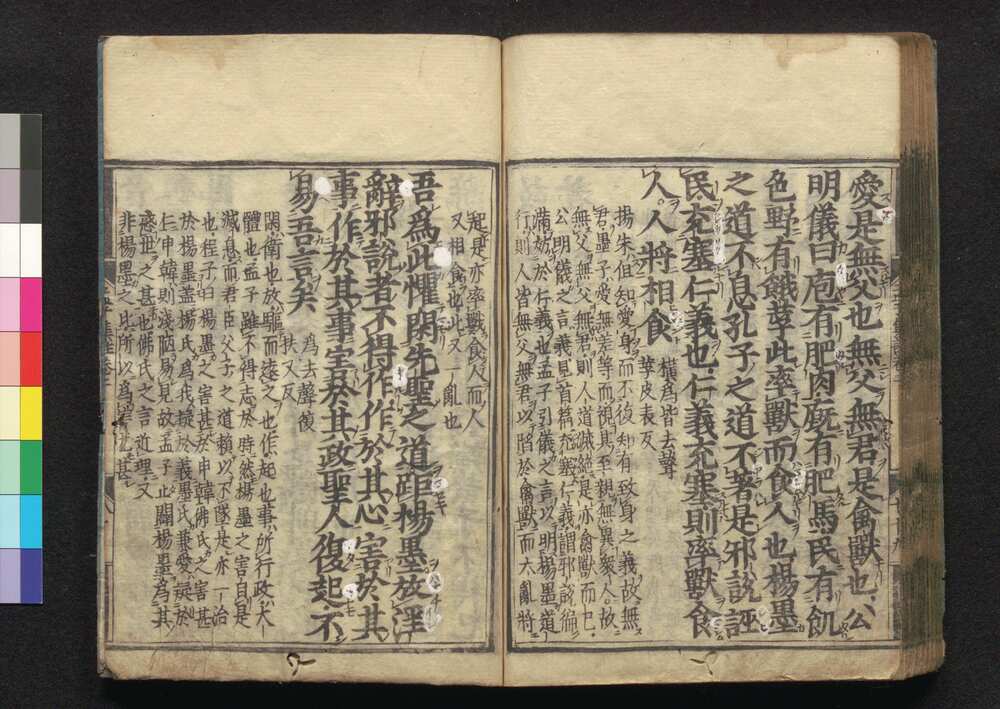 愛是無父也無父無君是禽獸也公
明儀曰庖有肥肉廐有肥馬民有飢
色野有餓莩此率獸而食人也楊墨
之道不息孔子之道不著是邪說誣
民充塞仁義也仁義充塞則率獸食
人人將相食 橫爲皆去聲
莩皮表反
揚朱但知愛身而不復知有致身之義故無
君墨子愛無差等而視其至親無異衆人故
無父無父無君則人道滅絕是亦禽獸而已
公明儀之言義見首篇充塞仁義謂邪說徧
滿妨於仁義也孟子引儀之言以明楊墨道
行則人皆無父無君以陷於禽獸而大亂將
起是亦率獸食人而人
又相食也此又一亂也
吾爲此懼閑先聖之道距楊墨放淫
辭邪說者不得作作於其心害於其
事作於其事害於其政聖人復起不
易吾言矣 爲去聲復
扶又反
閑衛也放驅而遠之也作起也事所行政大
體也孟子雖不得志於時然楊墨之害自是
滅息而君臣父子之道賴以不墜是亦一治
也程子曰楊墨之害甚於申韓佛氏之害甚
於楊墨蓋楊氏爲我疑於義墨氏兼愛疑於
仁申韓則淺陋易見故孟子止闢楊墨爲其
惑世之甚也佛氏之言近理又
非楊墨之比所以爲害尤甚